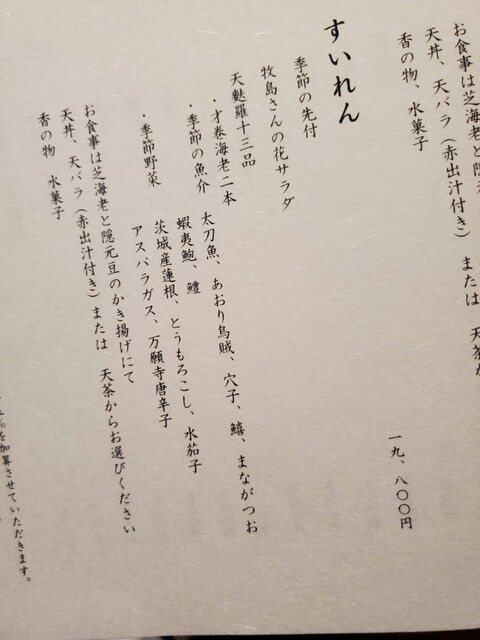 お食事は芝海老と隠元
天丼、天バラ（赤出汁付き）　または　天茶か
香の物、水菓子
すいれん
一九、八〇〇円
季節の先付
牧島さんの花サラダ
天麩羅十三品
・才巻海老二本
・季節の魚介　太刀魚、あおり烏賊、穴子、鱚、まながつお
蝦夷鮑、鱧
・季節野菜　茨城産蓮根、とうもろこし、水茄子
アスパラガス、万願寺唐辛子
お食事は芝海老と隠元豆のかき揚げにて
天丼、天バラ（赤出汁付き）または　天茶からお選びください
香の物　水菓子
％を加算させていただきます。